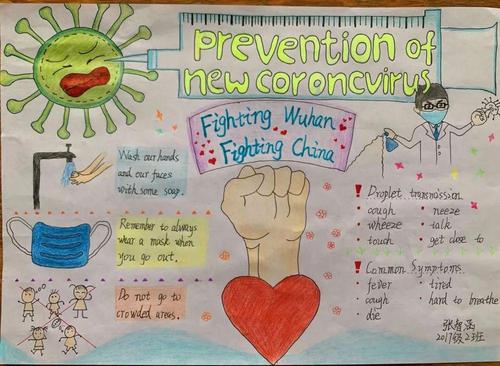 prevention of
new coroncvirus
Fighting Wuhan
Fighting China
Wash our hands
and our faces
with some soap.
Remember to always
wear a mask when
you go out.
Do not go to
crowded areas.
! Droplet transmission
· cough · neeze
· wheeze · talk
· touch · get close to
! Common Symptoms
· fever · tired
· cough · hard to breathe
· die
张智涵
2017级2班